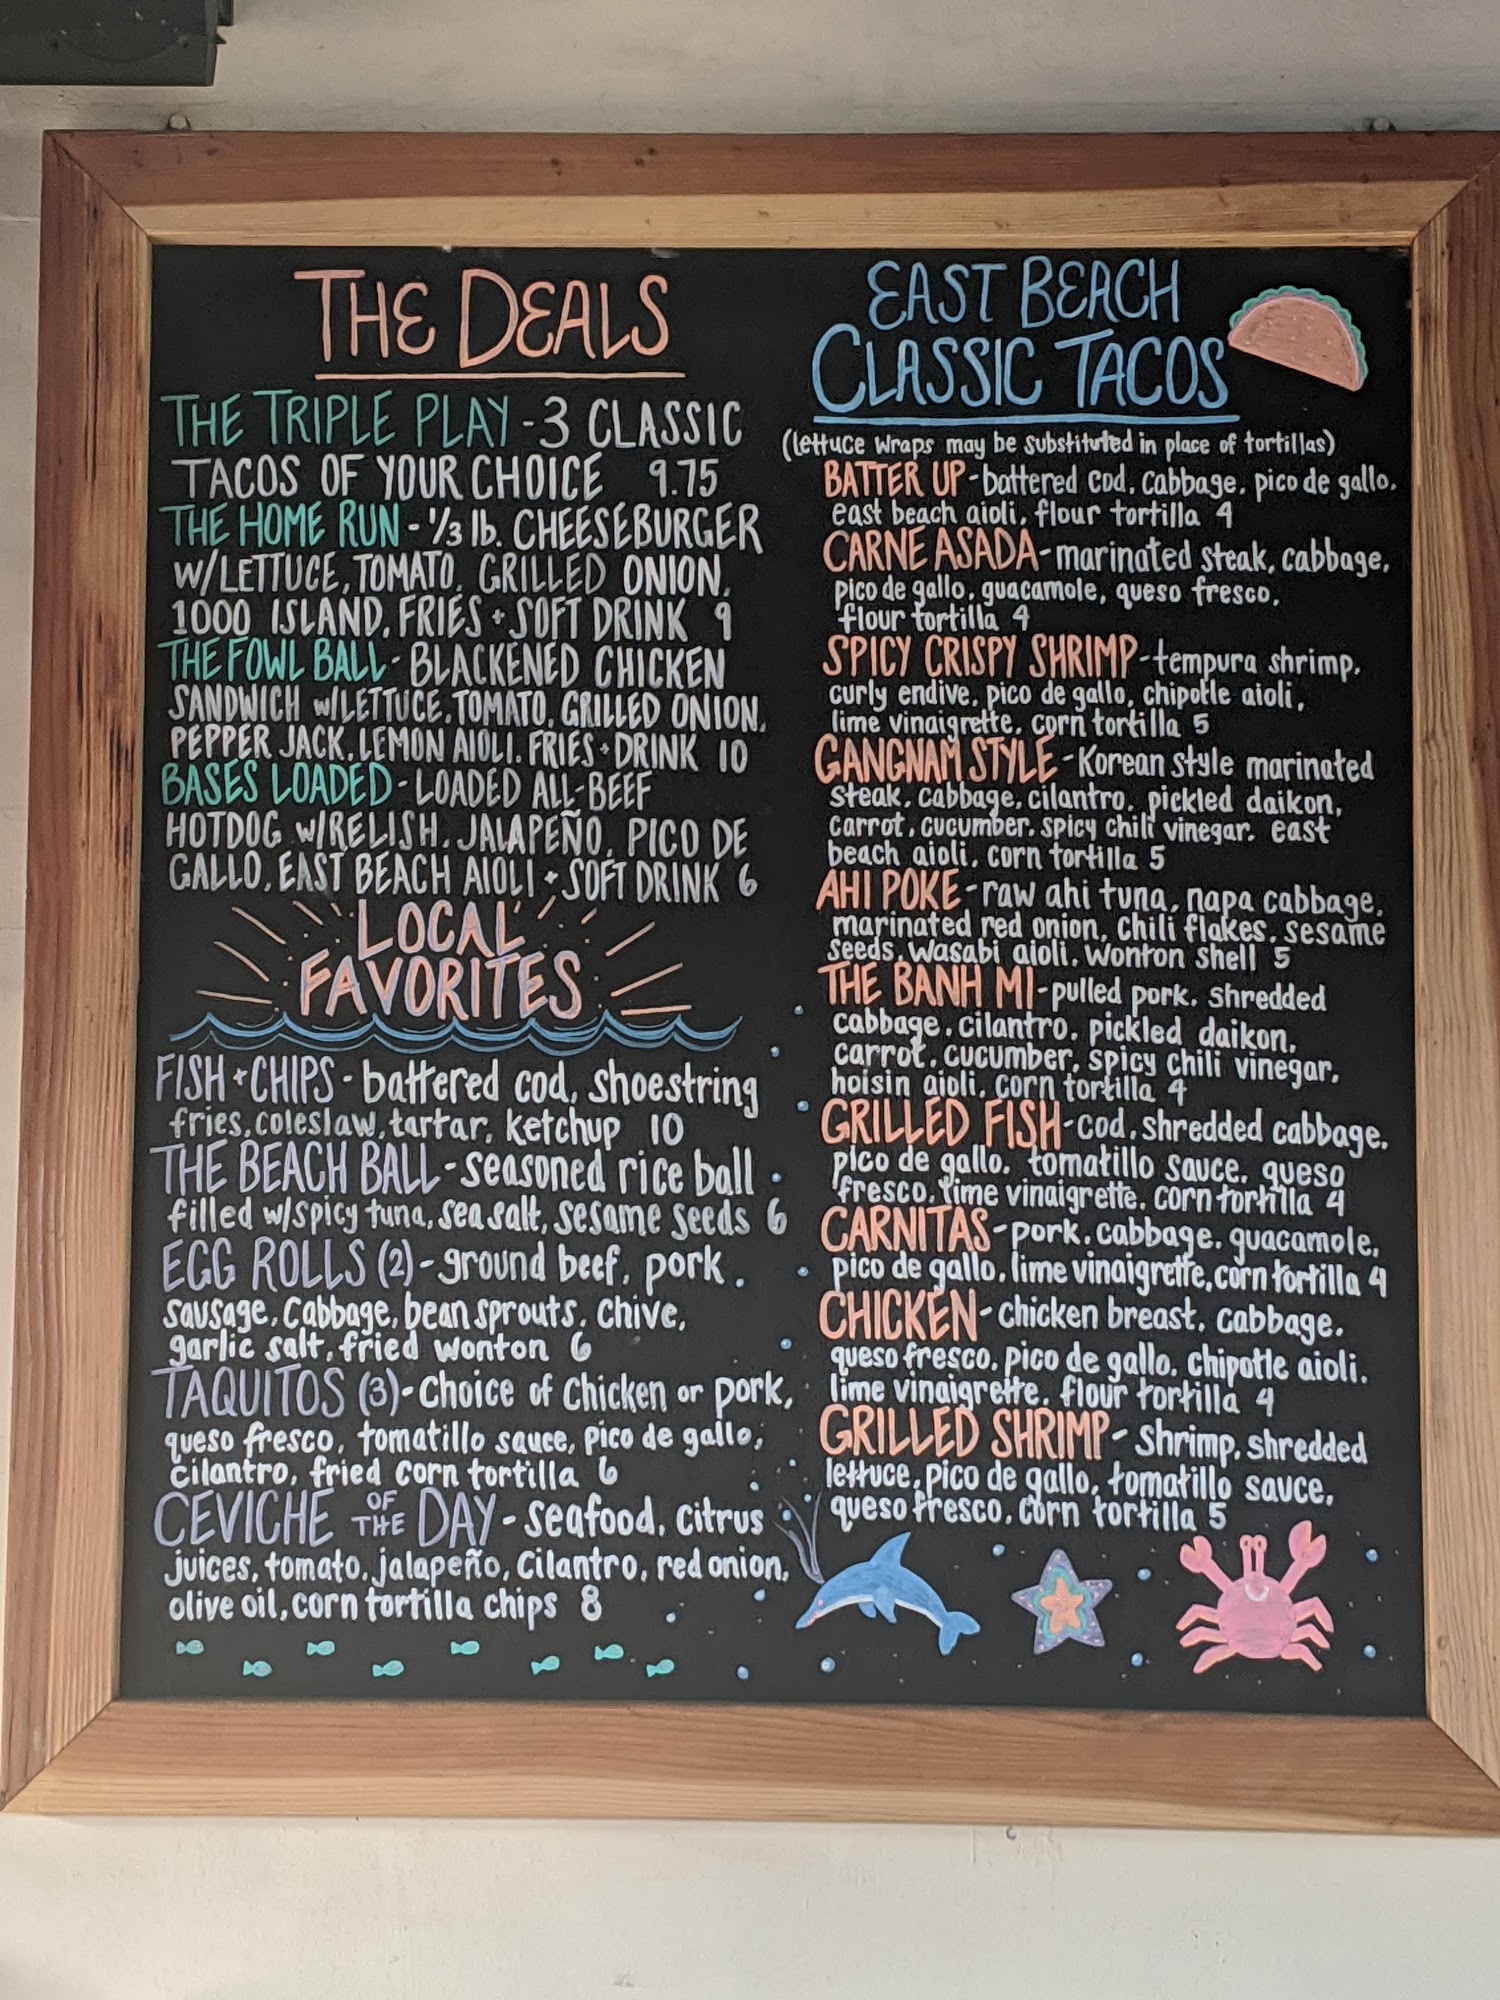 THE DEALS
THE TRIPLE PLAY - 3 CLASSIC
TACOS OF YOUR CHOICE 9.75
THE HOME RUN - 1/3 lb. CHEESEBURGER
W/LETTUCE, TOMATO, GRILLED ONION,
1000 ISLAND, FRIES + SOFT DRINK 9
THE FOWL BALL - BLACKENED CHICKEN
SANDWICH W/LETTUCE, TOMATO, GRILLED ONION,
PEPPER JACK, LEMON AIOLI, FRIES + DRINK 10
BASES LOADED - LOADED ALL-BEEF
HOTDOG W/RELISH, JALAPEÑO, PICO DE
GALLO, EAST BEACH AIOLI + SOFT DRINK 6
LOCAL
FAVORITES
FISH + CHIPS - battered cod, shoestring
fries, coleslaw, tartar, ketchup 10
THE BEACH BALL - seasoned rice ball
filled w/spicy tuna, sea salt, sesame seeds 6
EGG ROLLS (2) - ground beef, pork,
sausage, cabbage, bean sprouts, chive,
garlic salt, fried wonton 6
TAQUITOS (3) - Choice of Chicken or pork,
queso fresco, tomatillo sauce, pico de gallo,
cilantro, fried corn tortilla 6
CEVICHE OF THE DAY - seafood, citrus
juices, tomato, jalapeño, cilantro, red onion,
olive oil, corn tortilla chips 8
EAST BEACH
CLASSIC TACOS
(lettuce wraps may be substituted in place of tortillas)
BATTER UP - battered cod, cabbage, pico de gallo,
east beach aioli, flour tortilla 4
CARNE ASADA - marinated steak, cabbage,
pico de gallo, guacamole, queso fresco,
flour tortilla 4
SPICY CRISPY SHRIMP - tempura shrimp,
curly endive, pico de gallo, chipotle aioli,
lime vinaigrette, corn tortilla 5
GANGNAM STYLE - Korean style marinated
steak, cabbage, cilantro, pickled daikon,
carrot, cucumber, spicy chili vinegar, east
beach aioli, corn tortilla 5
AHI POKE - raw ahi tuna, napa cabbage,
marinated red onion, Chili flakes, sesame
seeds, wasabi aioli, wonton shell 5
THE BANH MI - pulled pork, shredded
cabbage, cilantro, pickled daikon,
carrot, cucumber, spicy chili vinegar,
hoisin aioli, corn tortilla 4
GRILLED FISH - cod, shredded cabbage,
pico de gallo, tomatillo sauce, queso
fresco, lime vinaigrette, corn tortilla 4
CARNITAS - pork, cabbage, guacamole,
pico de gallo, lime vinaigrette, corn tortilla 4
CHICKEN - chicken breast, cabbage,
queso fresco, pico de gallo, chipotle aioli,
lime vinaigrette, flour tortilla 4
GRILLED SHRIMP - shrimp, shredded
lettuce, pico de gallo, tomatillo sauce,
queso fresco, corn tortilla 5